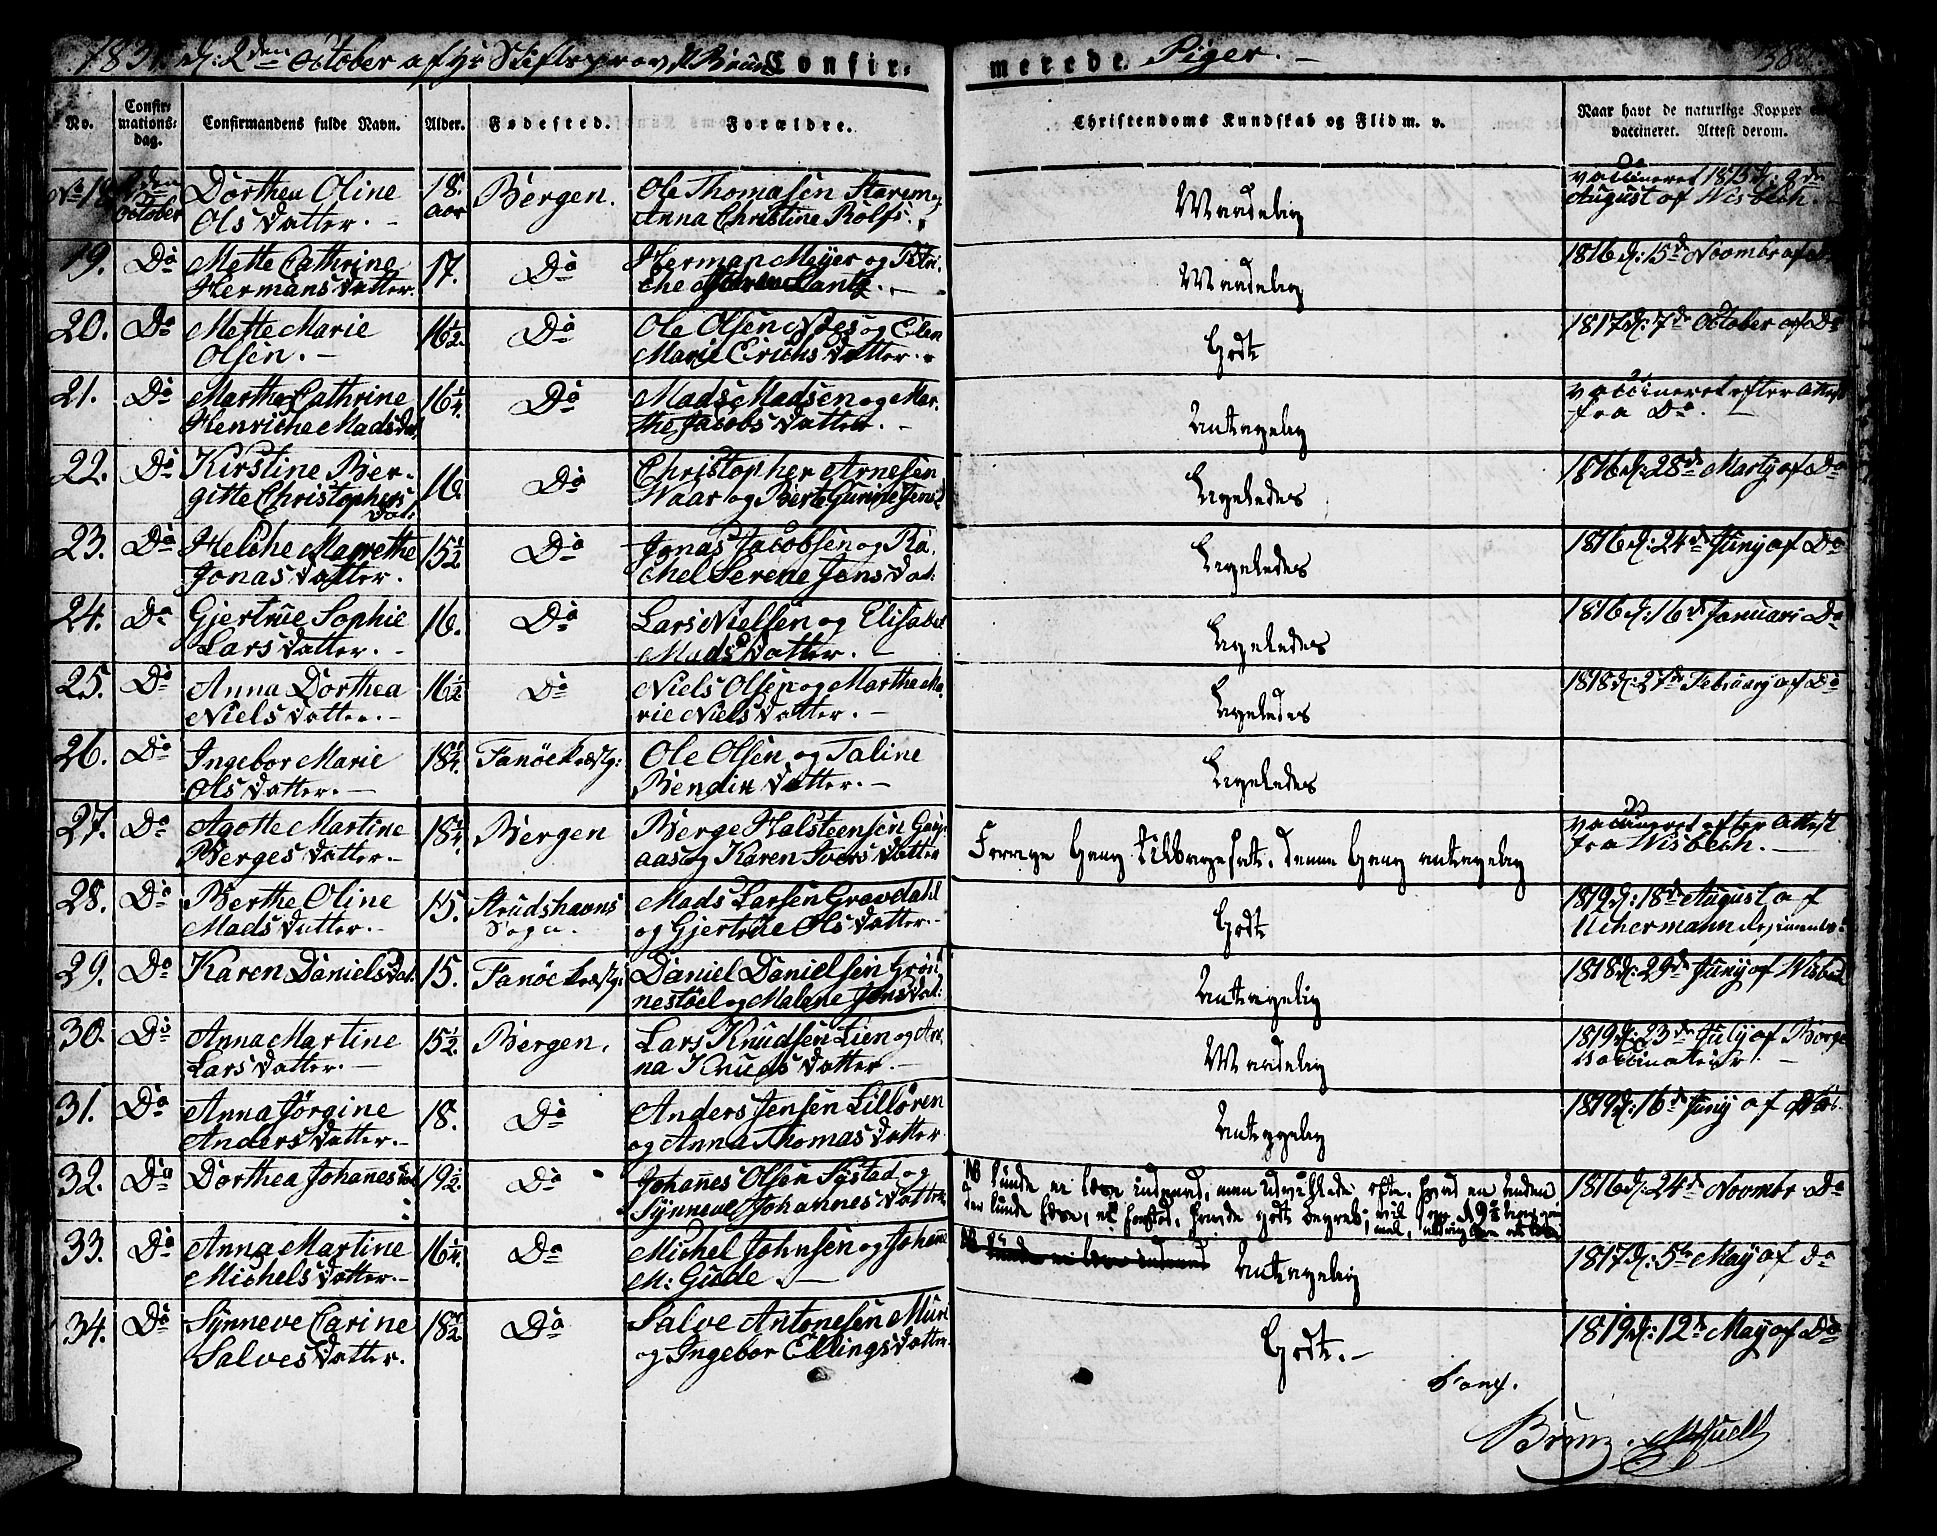 d: 2den October af Hr Stiftsprovst Confir-
merede. Piger. -
No.
Confir-
mations-
dag.
Confirmandens fulde Navn.
Alder.
Fødested.
Forældre.
Christendoms Kundskab og Flid m. v.
Naar havt de naturlige Kopper
vaccineret. Attest derom.
October
Dorthea Oline
Olsdatter. -
18.
aar
Bergen.
Ole Thomasen
Anna Christine Rolfs
Maadelig
vaccineret 1815 d: 9de
August af Wisbech.
19. Do Mette Cathrine
Hermansdatter.
17. Do
Herman Meyer og
Maadelig
1816 d: 15d Novmbr af Do
20. Do Mette Marie
Olsen. -
16½. Do
Ole Olsen Næs og Elen
Marie Erichsdatter.
Godt
1817 d: 7de October af Do
21. Do Marthe Cathrine
Henriche Madsdat
16¼. Do
Mads Madsen og Mar-
the Jacobsdatter. -
Antagelig
vaccineret efter Attest
fra Do. -
22. Do Kirstine Ber-
gitte Christophers
dat:
16. Do
Christopher Arnesen
Waar og
Ligeledes
1816 d: 28d Marty af Do
23. Do Helche Magrethe
Jonasdatter.
15½ Do
Jonas Jacobsen og Ra-
chel Serene Jensdat:
Ligeledes
1816 d: 24d Juny af Do
24. Do Gjertrue Sophie
Larsdatter. -
16. Do
Lars Nielsen og Elisabet
Madsdatter. -
Ligeledes
1816 d: 16d Januari Do
25. Do Anna Dorthea
Nielsdatter. -
16½ Do
Niels Olsen og Marthe Ma-
rie Nielsdatter. -
Ligeledes
1818 d: 27d February af Do
26. Do Ingebor Marie
Olsdatter. -
18¼. Fanöe Præstg:
Ole Olsen og Taline
Bendixdatter. -
Ligeledes
27. Do Agotte Martine
Bergesdatter. -
18¼. Bergen
Berge Halsteensen
aas og Karen Iversdatter
Forrige Gang tilbagesat. denne Gang antagelig
vaccineret efter Attest
fra Wisbech. -
28. Do Berthe Oline
Madsdatter. -
15. Strudshavns
Sogn.
Mads Larsen Gravdahl
og Gjertrue Olsdatter. -
Godt
1819 d: 18d August af
29. Do Karen Danielsdat.
15. Fanöe Præstg:
Daniel Danielsen Grön-
nestöel og Malene Jensdat:
Antagelig
1818 d: 29d Juny af Wisbech
30. Do Anna Martine
Larsdatter. -
15½. Bergen.
Lars Knudsen Lien og An-
na Knudsdatter. -
Maadelig
1819 d: 23de July af
Vaccinateur. -
31. Do Anna Jörgine
Andersdatter. -
18. Do
Anders Jensen Lillören
og Anna Thomasdatter
Antagelig
1819 d: 16d Juny af Do
32. Do Dorthea Johanesdat
19½. Do
Johanes Olsen Systad og
Synneve Johannesdatter
NB kunde ei læse indenad, men udvikled efter hvad en anden
1816 d: 24d Novmbr Do
33. Do Anna Martine
Michelsdatter. -
16¼. Do
Michel Johnsen og Johane
M: Gude. -
Antagelig
1817 d: 5te May af do
34. Do Synneve Carine
Salvesdatter.
18½. Do
Salve Antonesen
og Ingebor Ellingsdatter
Godt. -
1819 d: 12d May af Do